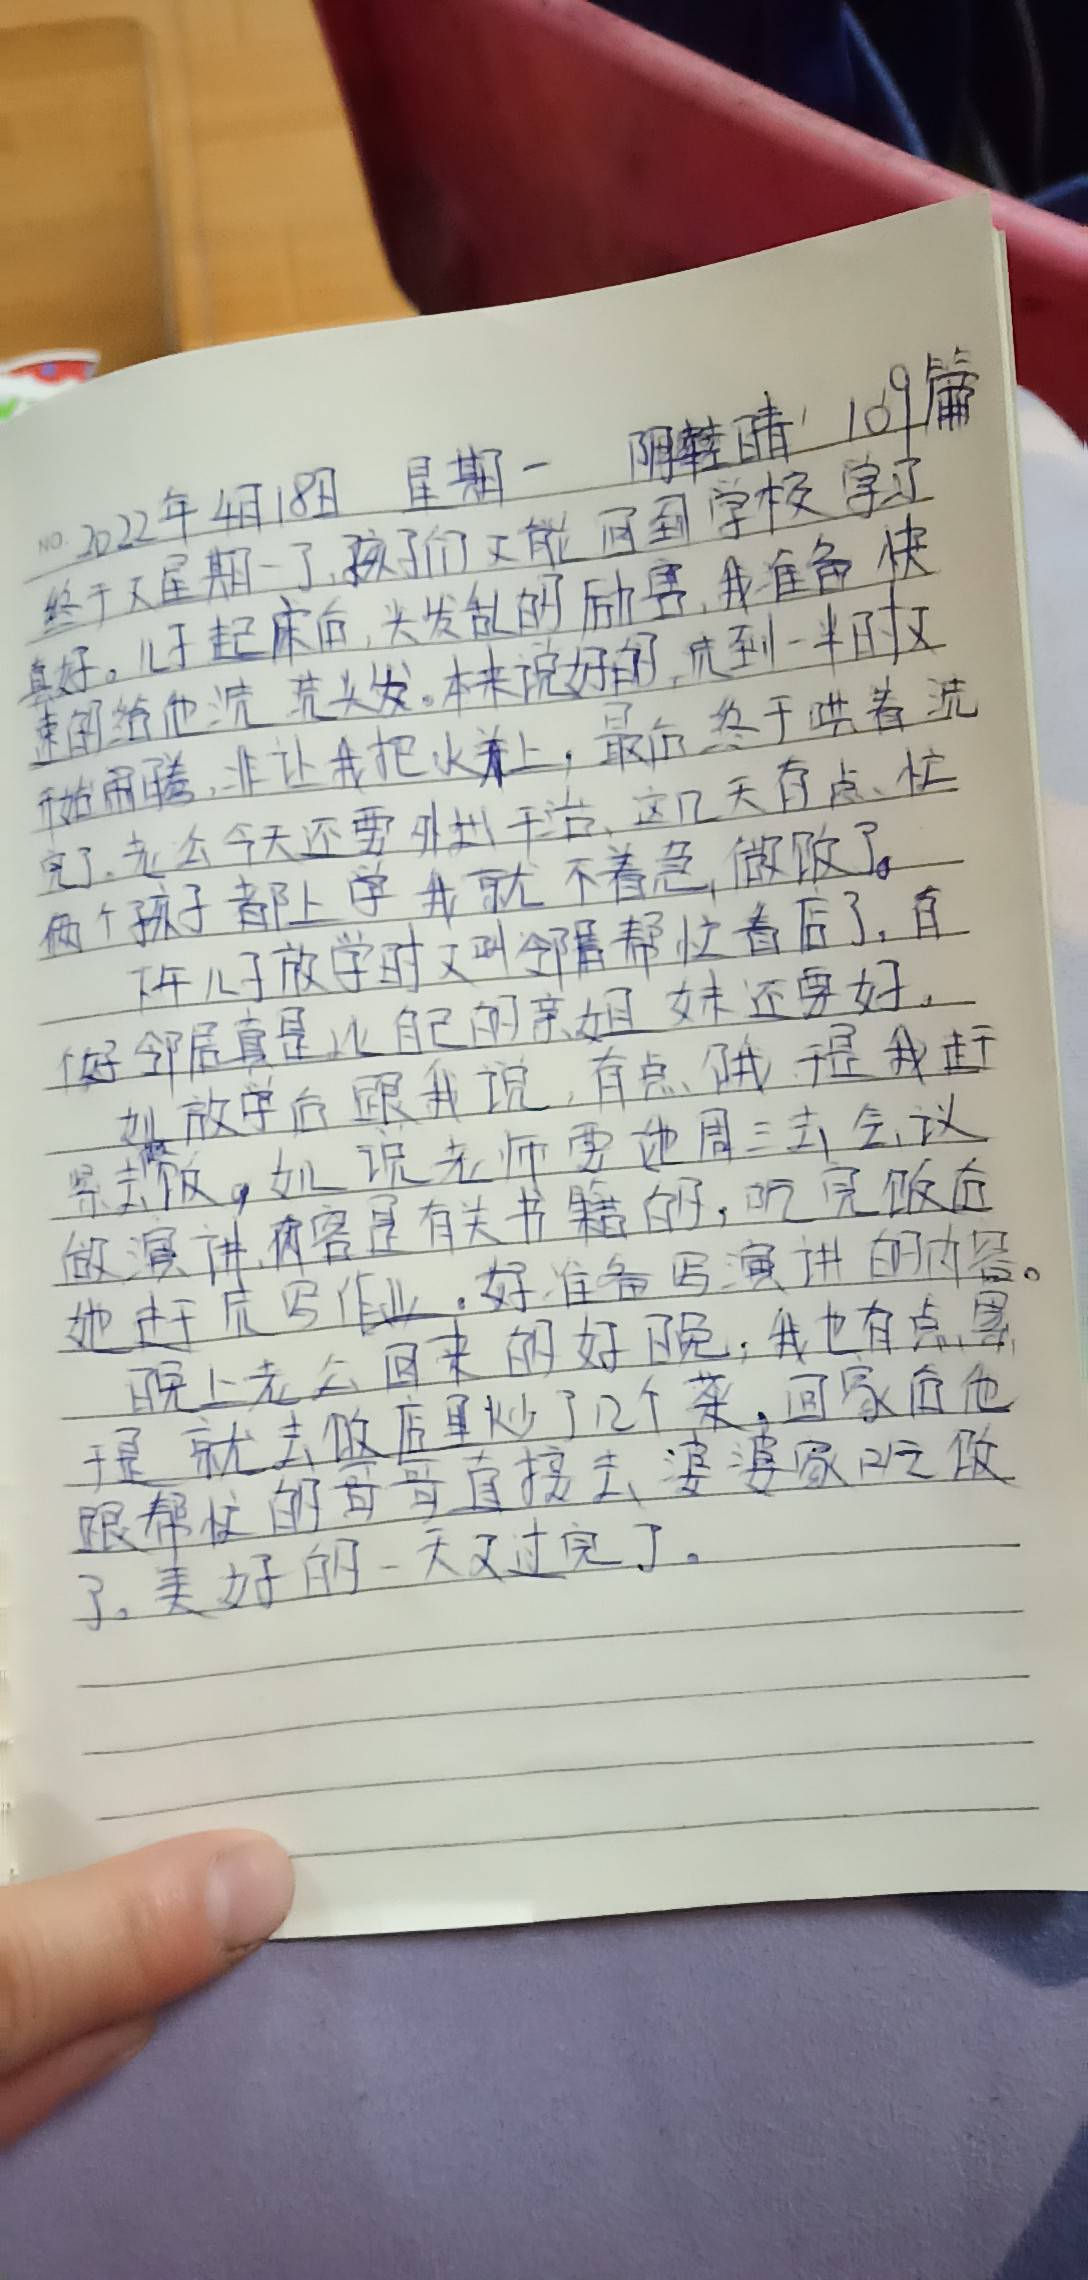 NO. 2022年4月18日 星期一 阴转晴 109篇
终于又星期一了,孩子们又能回到学校学习
真好。儿子起床后,头发乱的励害,我准备快
速的给他洗洗头发。本来说好的,洗到一半时又
开始闹腾,非让我把水关上,最后终于哄着洗
完了.老公今天还要外出干活、这几天有点忙
两个孩子都上学我就不着急,做饭了。
下午儿子放学时又叫邻居帮忙看店了,有
个好邻居真是比自己的亲姐妹还要好。
女儿放学后跟我说,有点饿于是我赶
紧去做饭。女儿说老师要她周三去会议
做演讲,内容是有关书籍的,吃完饭后
她赶忙写作业.好准备写演讲的内容。
晚上老公回来的好晚,我也有点累
于是就去饭店里炒了几个菜,回家后他
跟帮忙的哥哥直接去婆婆家吃饭
了。美好的一天又过完了。